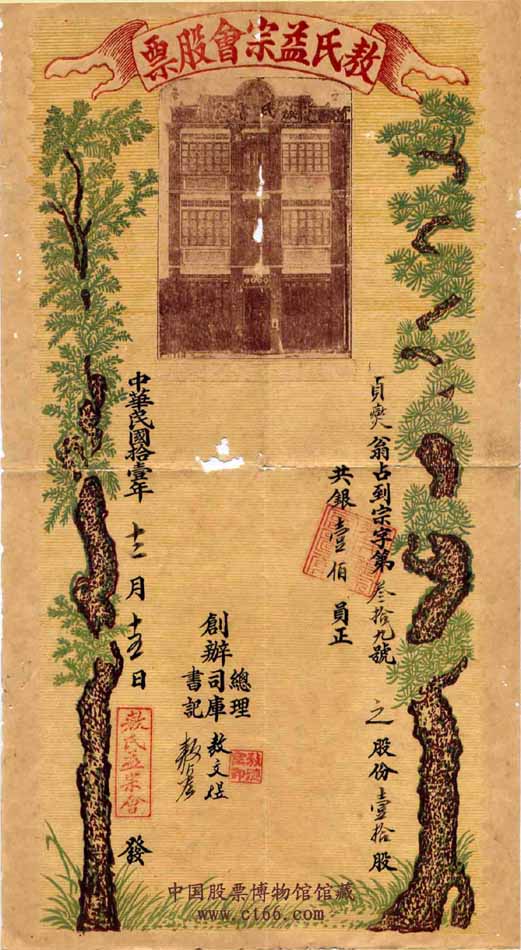 敖氏益宗會股票
貞奭翁占到宗字第叁拾九號之股份壹拾股
共銀壹佰員正
創辦
總理
司庫 敖文煜
書記
中華民國拾壹年十二月十五日發
敖氏益宗會
中国股票博物馆馆藏
www.ct66.com